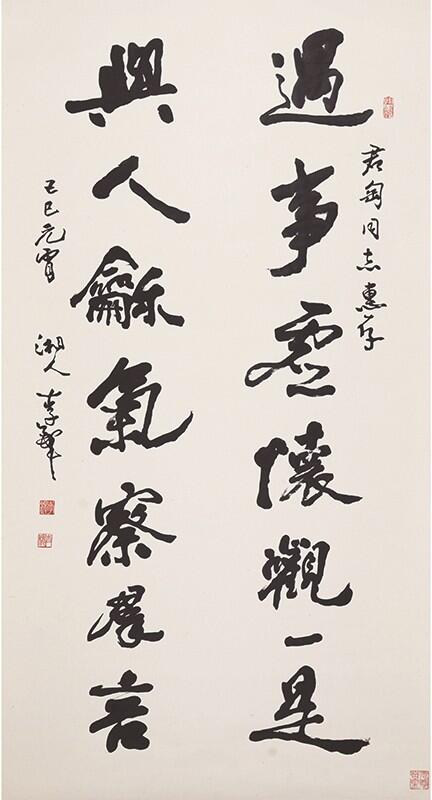 君匋同志惠存
遇事虛懷觀一是
與人龢氣察羣言
己巳元宵 湘人李鐸